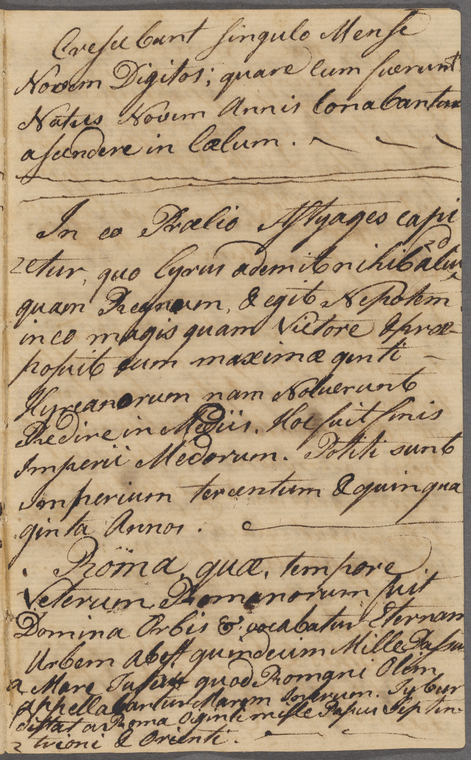 Cresce bant singulo Mense
Novem Digitos; quare cum fuerunt
Natus Novem Annis Conabantur
ascendere in Cœlum.
In eo Prælio Astyages capi
etur, quo Cyrus ademit nihil aliud
quam Regnum, & egit Nepotem
in eo magis quam Victore & præ-
posuit eum maximæ genti
Hyrcanorum nam Noluerunt
Redire in Mediis. Hoc fuit finis
Imperii Medorum. Potiti sunt
Imperium tercentum & quinqua
ginta Annos.
Roma quæ, tempore
Veterum Romanorum fuit
Domina Orbis & vocabatur Eternam
Urbem abest quindecim Mille Passus
a Mare quod Romani Olim
appellabantur Marem Tybur
distat a Roma mille Passus Septen
trioni & Orienti.